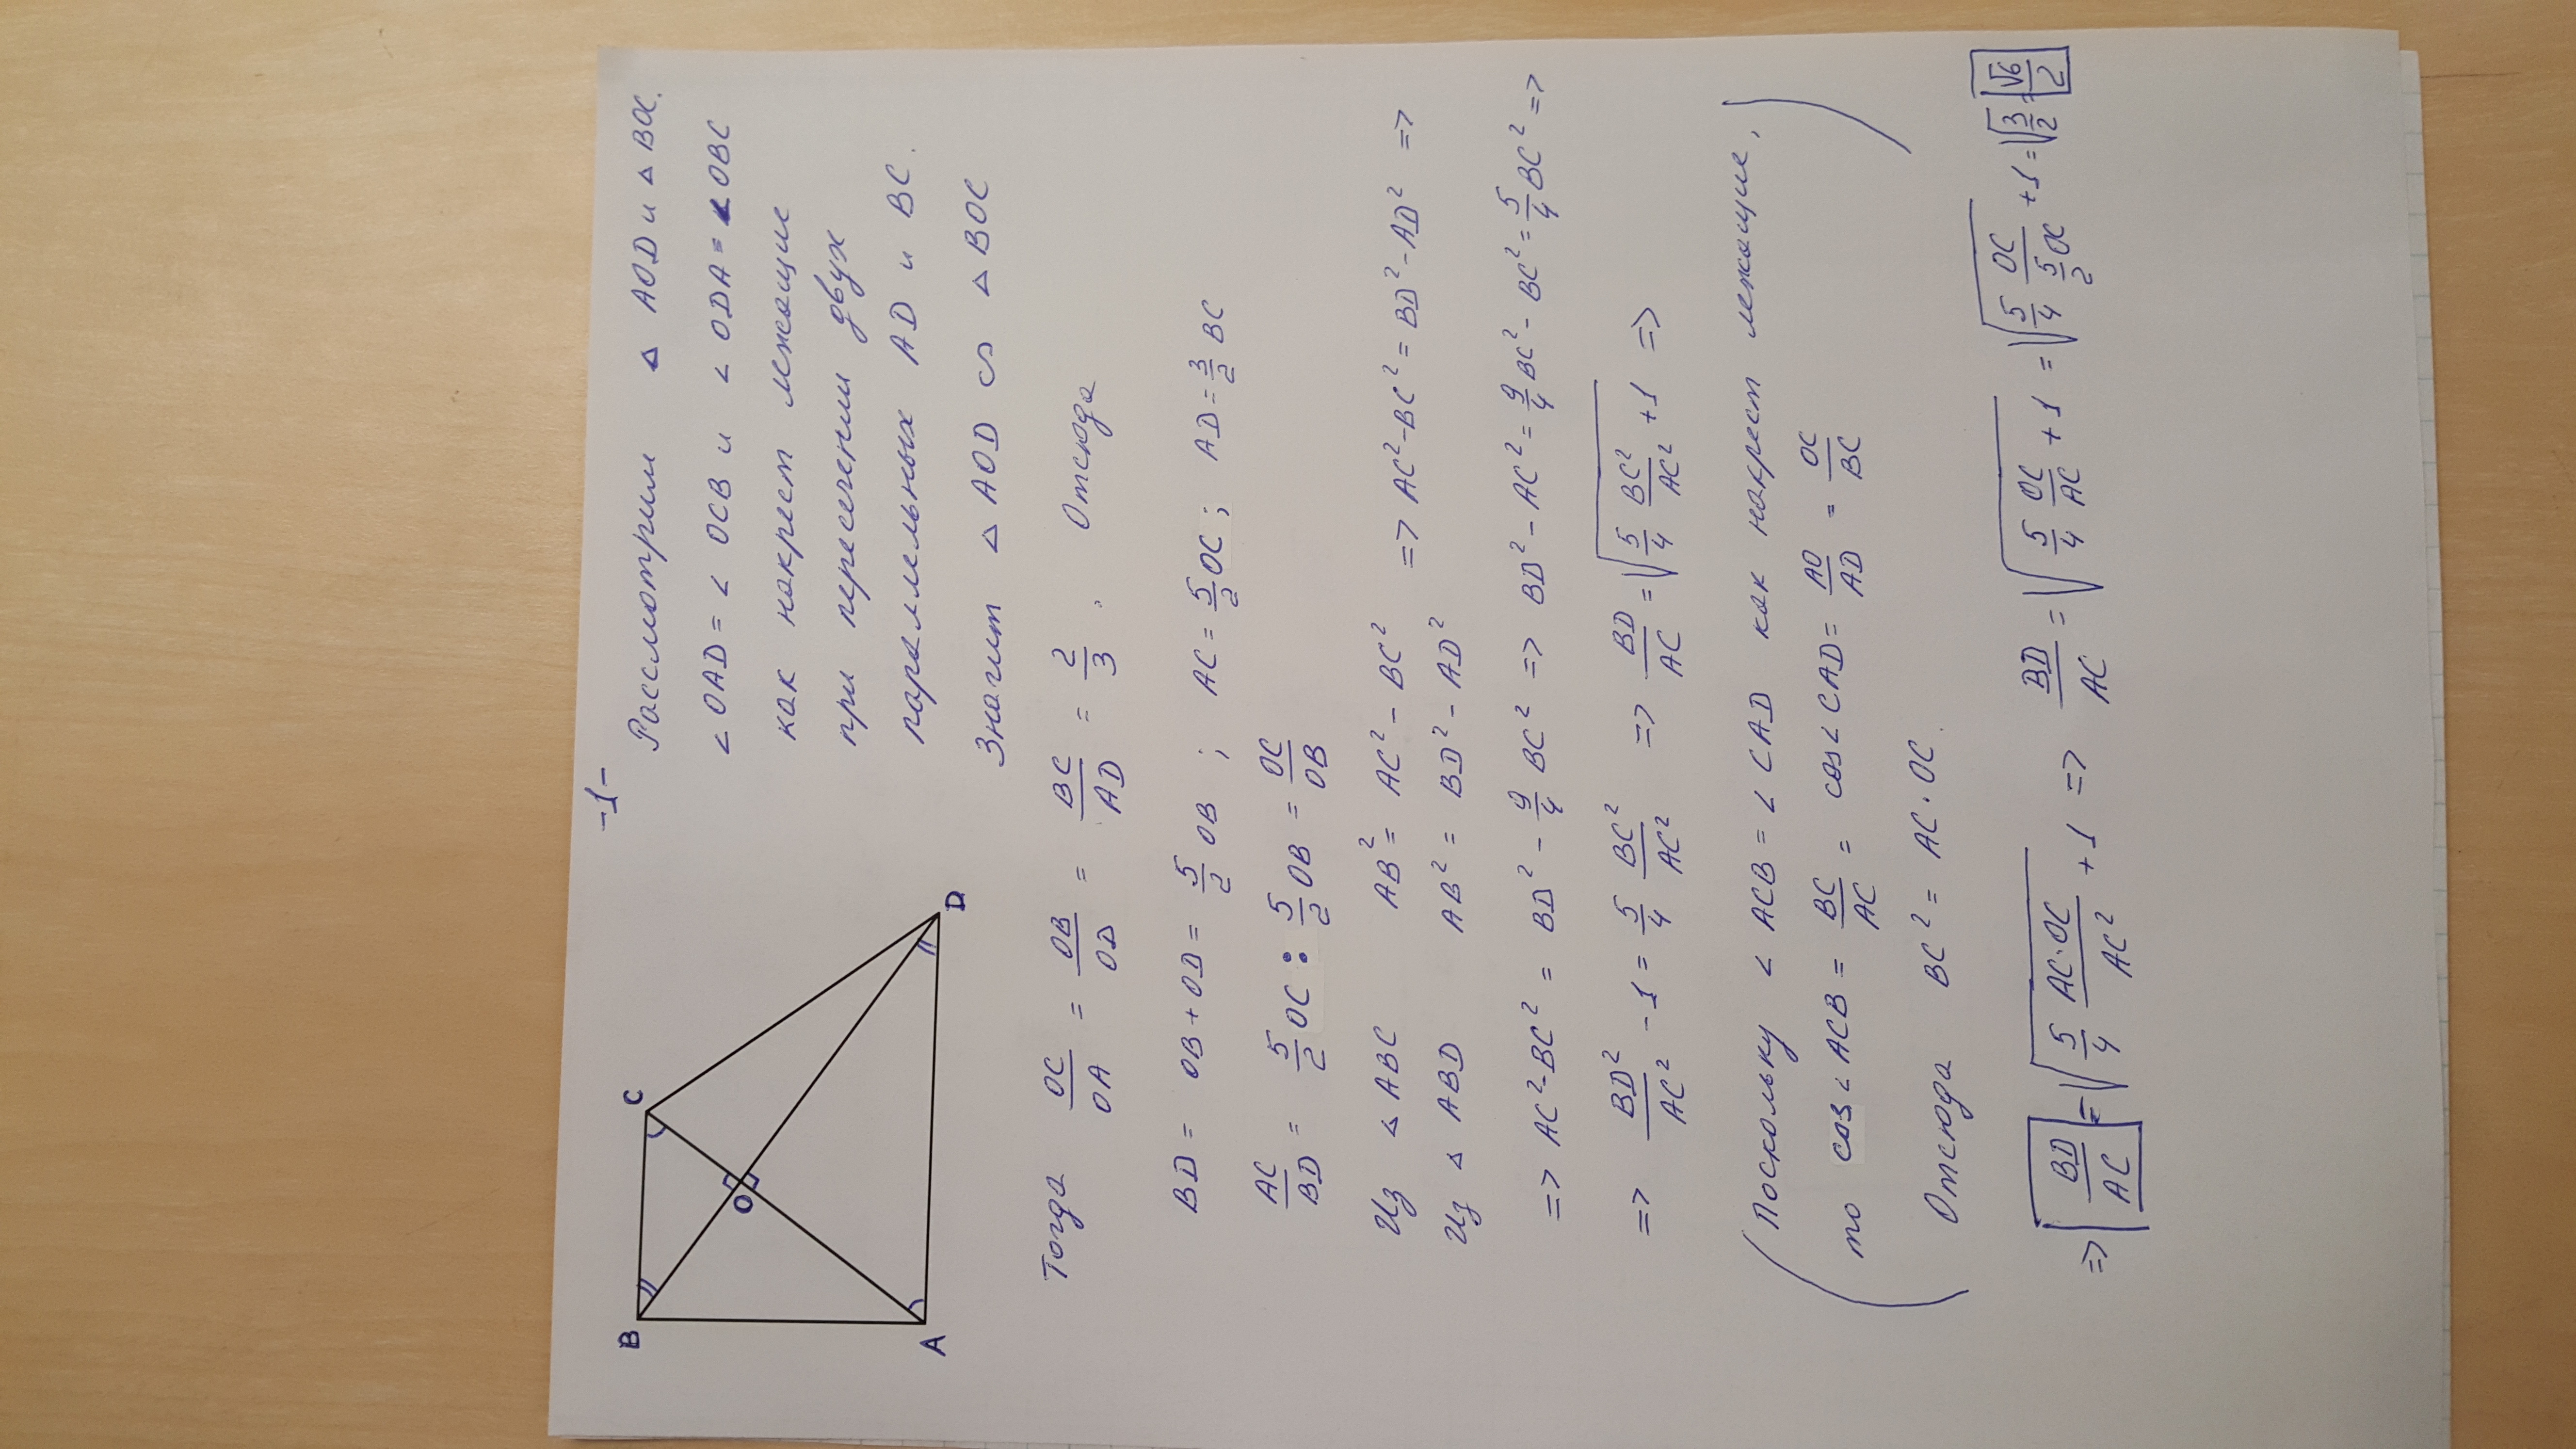 -1-
B C O A D
Рассмотрим △ AOD и △ BOC.
∠ OAD = ∠ OCB и ∠ ODA = ∠ OBC
как накрест лежащие
при пересечении двух
параллельных AD и BC.
Значит △ AOD ∽ △ BOC
Тогда OC/OA = OB/OD = BC/AD = 2/3. Отсюда
BD = OB + OD = 5/2 OB ; AC = 5/2 OC ; AD = 3/2 BC
AC/BD = 5/2 OC : 5/2 OB = OC/OB
Из △ ABC AB² = AC² - BC²
Из △ ABD AB² = BD² - AD² => AC² - BC² = BD² - AD² =>
=> AC² - BC² = BD² - 9/4 BC² => BD² - AC² = 9/4 BC² - BC² = 5/4 BC² =>
=> BD²/AC² - 1 = 5/4 BC²/AC² => BD/AC = √(5/4 BC²/AC² + 1) =>
(Поскольку ∠ ACB = ∠ CAD как накрест лежащие,
то cos ∠ ACB = BC/AC = cos ∠ CAD = AO/AD = OC/BC
Отсюда BC² = AC · OC.)
=> BD/AC = √(5/4 AC·OC/AC² + 1) => BD/AC = √(5/4 OC/AC + 1) = √(5/4 OC/(5/2 OC) + 1) = √(3/2) = √6/2